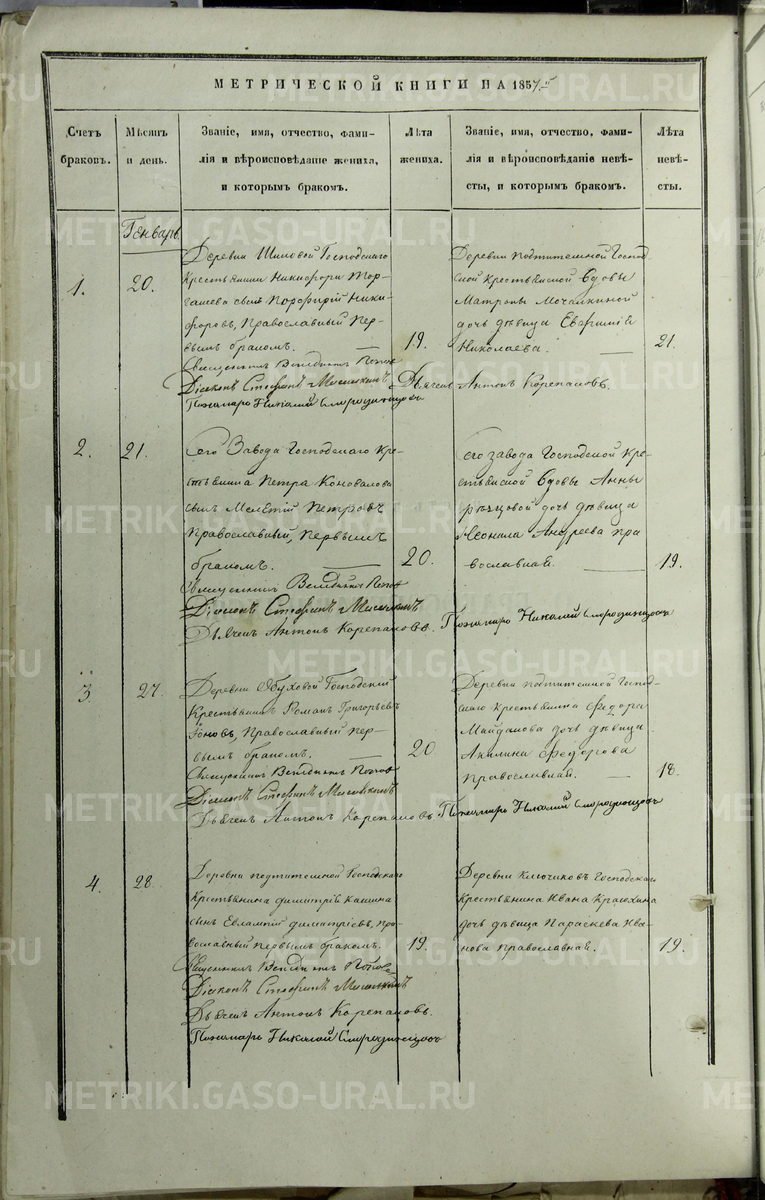 МЕТРИЧЕСКОЙ КНИГИ НА 1857
Счетъ браковъ.
Мѣсяцъ и день.
Званіе, имя, отчество, фами-
лія и вѣроисповѣданіе жениха,
и которымъ бракомъ.
Лѣта жениха.
Званіе, имя, отчество, фами-
лія и вѣроисповѣданіе невѣ-
сты, и которымъ бракомъ.
Лѣта невѣ-
сты.
Генварь.
1.
20.
Деревни Шиповой Господскаго
Крестьянина Никифора
сынъ Порфирій Ники-
форовъ, Православный Пер-
вымъ бракомъ.
19.
Деревни подтитемной Господ-
ской крестьянской вдовы
Матроны Мочалкиной
дочь дѣвица
Николаева.
21.
Священникъ Венедиктъ Поповъ
Діаконъ Стефанъ
Дьячекъ Антонъ Корепановъ.
Пономарь Николай Смородинцовъ
2.
21.
Сего Завода Господскаго Кре-
стьянина Петра Коновалова
сынъ Мелетій Петровъ
Православный, первымъ
бракомъ.
20.
Сего завода Господской Кре-
стьянской вдовы Анны
дочь дѣвица
Леонила Андреева пра-
вославная.
19.
Священникъ Венедиктъ Поповъ
Діаконъ Стефанъ
Дьячекъ Антонъ Корепановъ. Пономарь Николай Смородинцовъ
3.
27.
Деревни Обуховой Господскій
Крестьянинъ Романъ Григорьевъ
Іоновъ, Православный пер-
вымъ бракомъ.
20
Деревни подтитемной Господ-
скаго крестьянина Федора
Майданова дочь дѣвица
Акилина Федорова
православная.
18.
Священникъ Венедиктъ Поповъ
Діаконъ Стефанъ
Дьячекъ Антонъ Корепановъ. Пономарь Николай Смородинцовъ
4.
28.
Деревни подтитемной Господскаго
Крестьянина Димитрія Кашина
сынъ Евлампій Димитріевъ, пра-
вославный первымъ бракомъ.
19.
Деревни Ключиковъ Господскаго
Крестьянина Ивана
дочь дѣвица Параскева Ива-
нова православная.
19.
Священникъ Венедиктъ Поповъ
Діаконъ Стефанъ
Дьячекъ Антонъ Корепановъ.
Пономарь Николай Смородинцовъ
METRIKI.GASO-URAL.RU